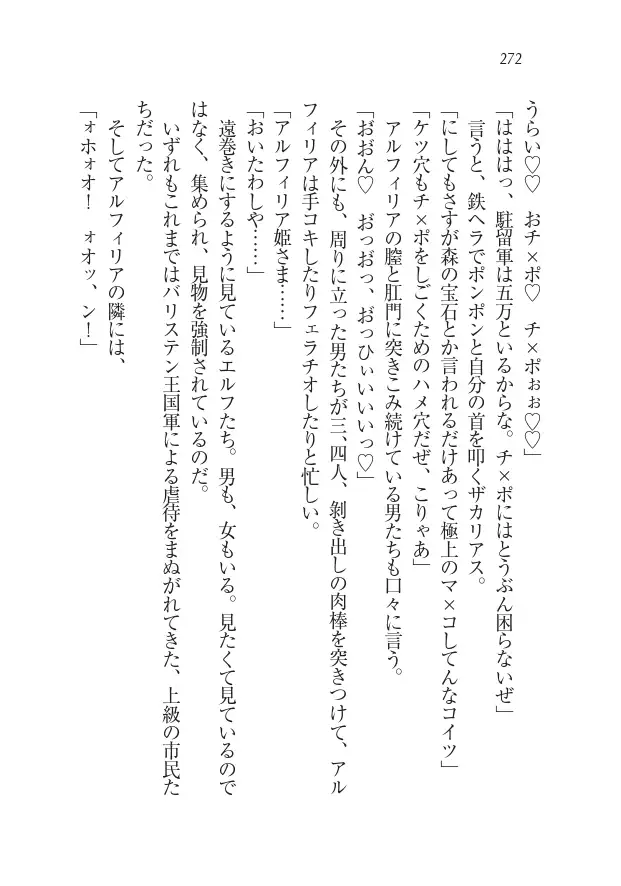 272
うらい♡♡　おチ×ポ♡　チ×ポぉぉ♡♡」
「はははっ、駐留軍は五万といるからな。チ×ポにはとうぶん困らないぜ」
　言うと、鉄ヘラでポンポンと自分の首を叩くザカリアス。
「にしてもさすが森の宝石とか言われるだけあって極上のマ×コしてんなコイツ」
「ケツ穴もチ×ポをしごくためのハメ穴だぜ、こりゃあ」
　アルフィリアの膣と肛門に突きこみ続けている男たちも口々に言う。
「おおおん♡　おっおっ、おっひぃいいいっ♡」
　その外にも、周りに立った男たちが三、四人、剝き出しの肉棒を突きつけて、アル
フィリアは手コキしたりフェラチオしたりと忙しい。
「アルフィリア姫さま……」
「おいたわしや……」
　遠巻きにするように見ているエルフたち。男も、女もいる。見たくて見ているので
はなく、集められ、見物を強制されているのだ。
　いずれもこれまではバリステン王国軍による虐待をまぬがれてきた、上級の市民た
ちだった。
　そしてアルフィリアの隣には、
「ォホォオ！　ォオッ、ン！」